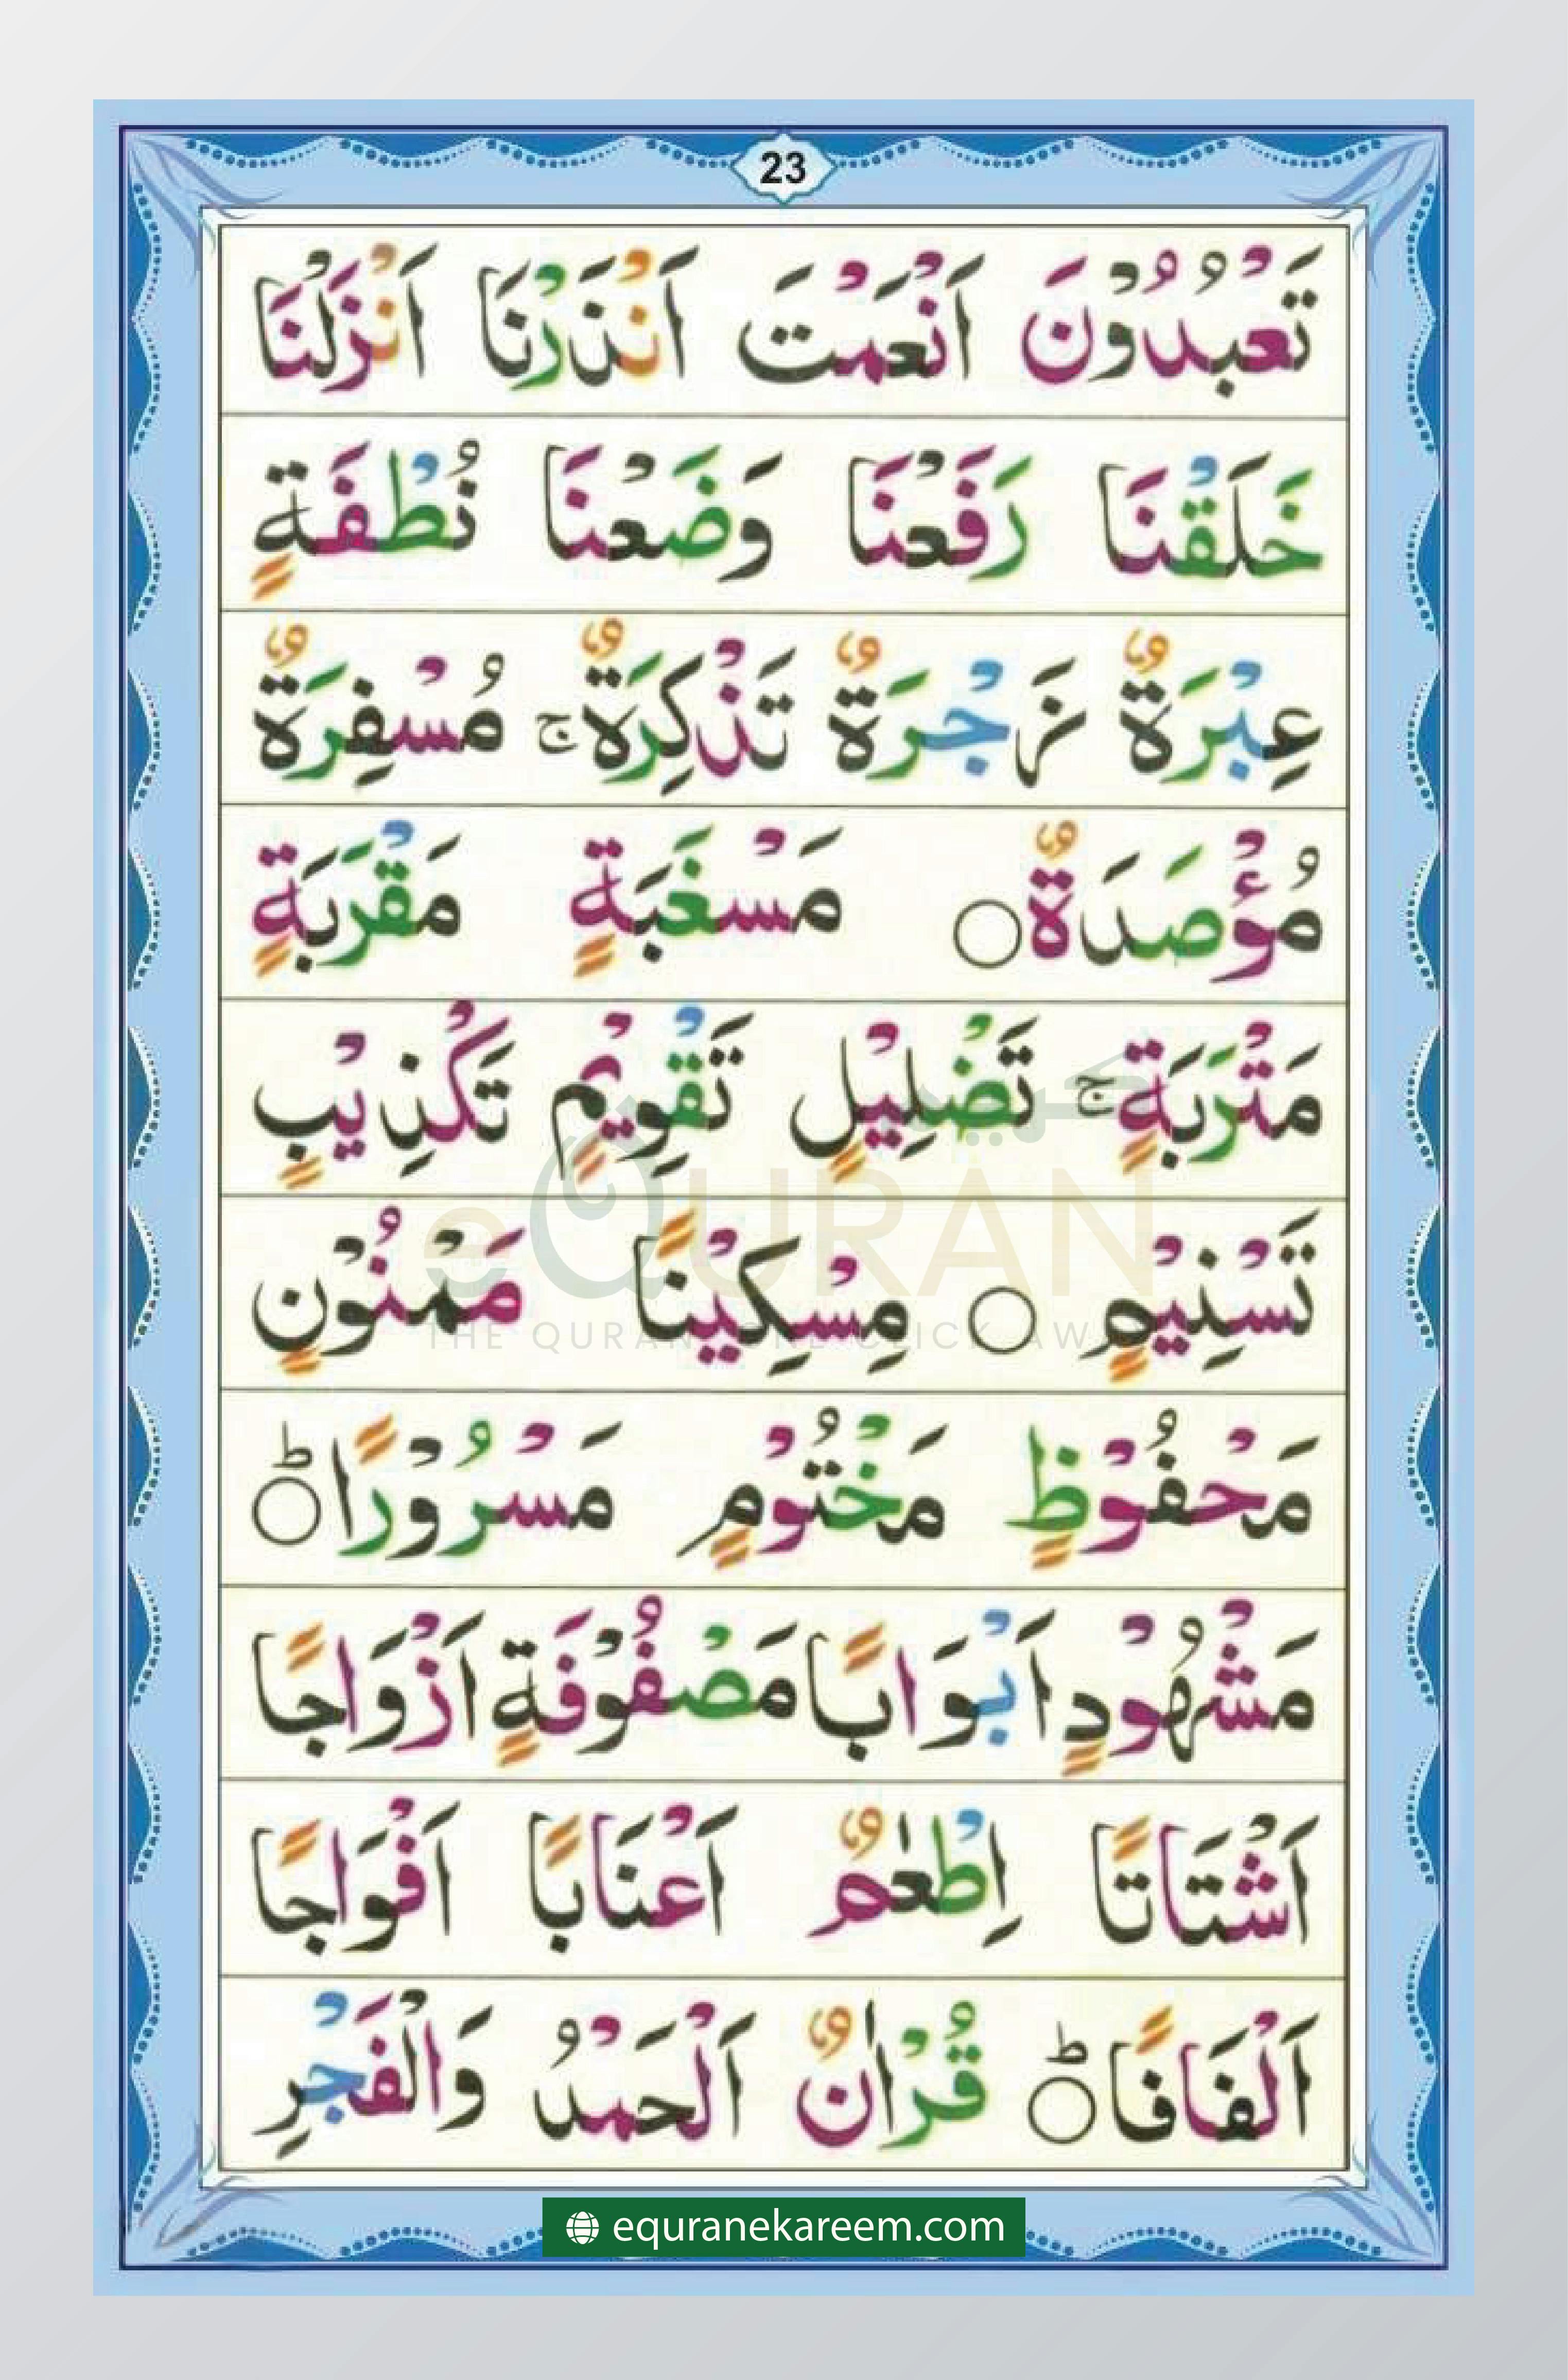 23
تَعْبُدُوْنَ اَنْعَمْتَ اَنْذَرْنَا اَنْزَلْنَا
خَلَقْنَا رَفَعْنَا وَضَعْنَا نُطْفَةٍ
عِبْرَةٌ زَجْرَةٌ تَذْكِرَةٌ ج مُسْفِرَةٌ
مُؤْصَدَةٌ ○ مَسْغَبَةٍ مَقْرَبَةٍ
مَتْرَبَةٍ ج تَضْلِيْلٍ تَقْوِيْمٍ تَكْذِيْبٍ
تَسْنِيْمٍ ○ مِسْكِيْنًا مَمْنُوْنٍ
مَحْفُوْظٍ مَخْتُوْمٍ مَسْرُوْرًا ○ؕ
مَشْهُوْدٍ اَبْوَابًا مَصْفُوْفَةٍ اَزْوَاجًا
اَشْتَاتًا اِطْعٰمٌ اَعْنَابًا اَفْوَاجًا
اَلْفَافًا ○ؕ قُرْاٰنٌ اَلْحَمْدُ وَالْفَجْرِ
eQURAN
THE QURAN ONE CLICK AWAY
equranekareem.com